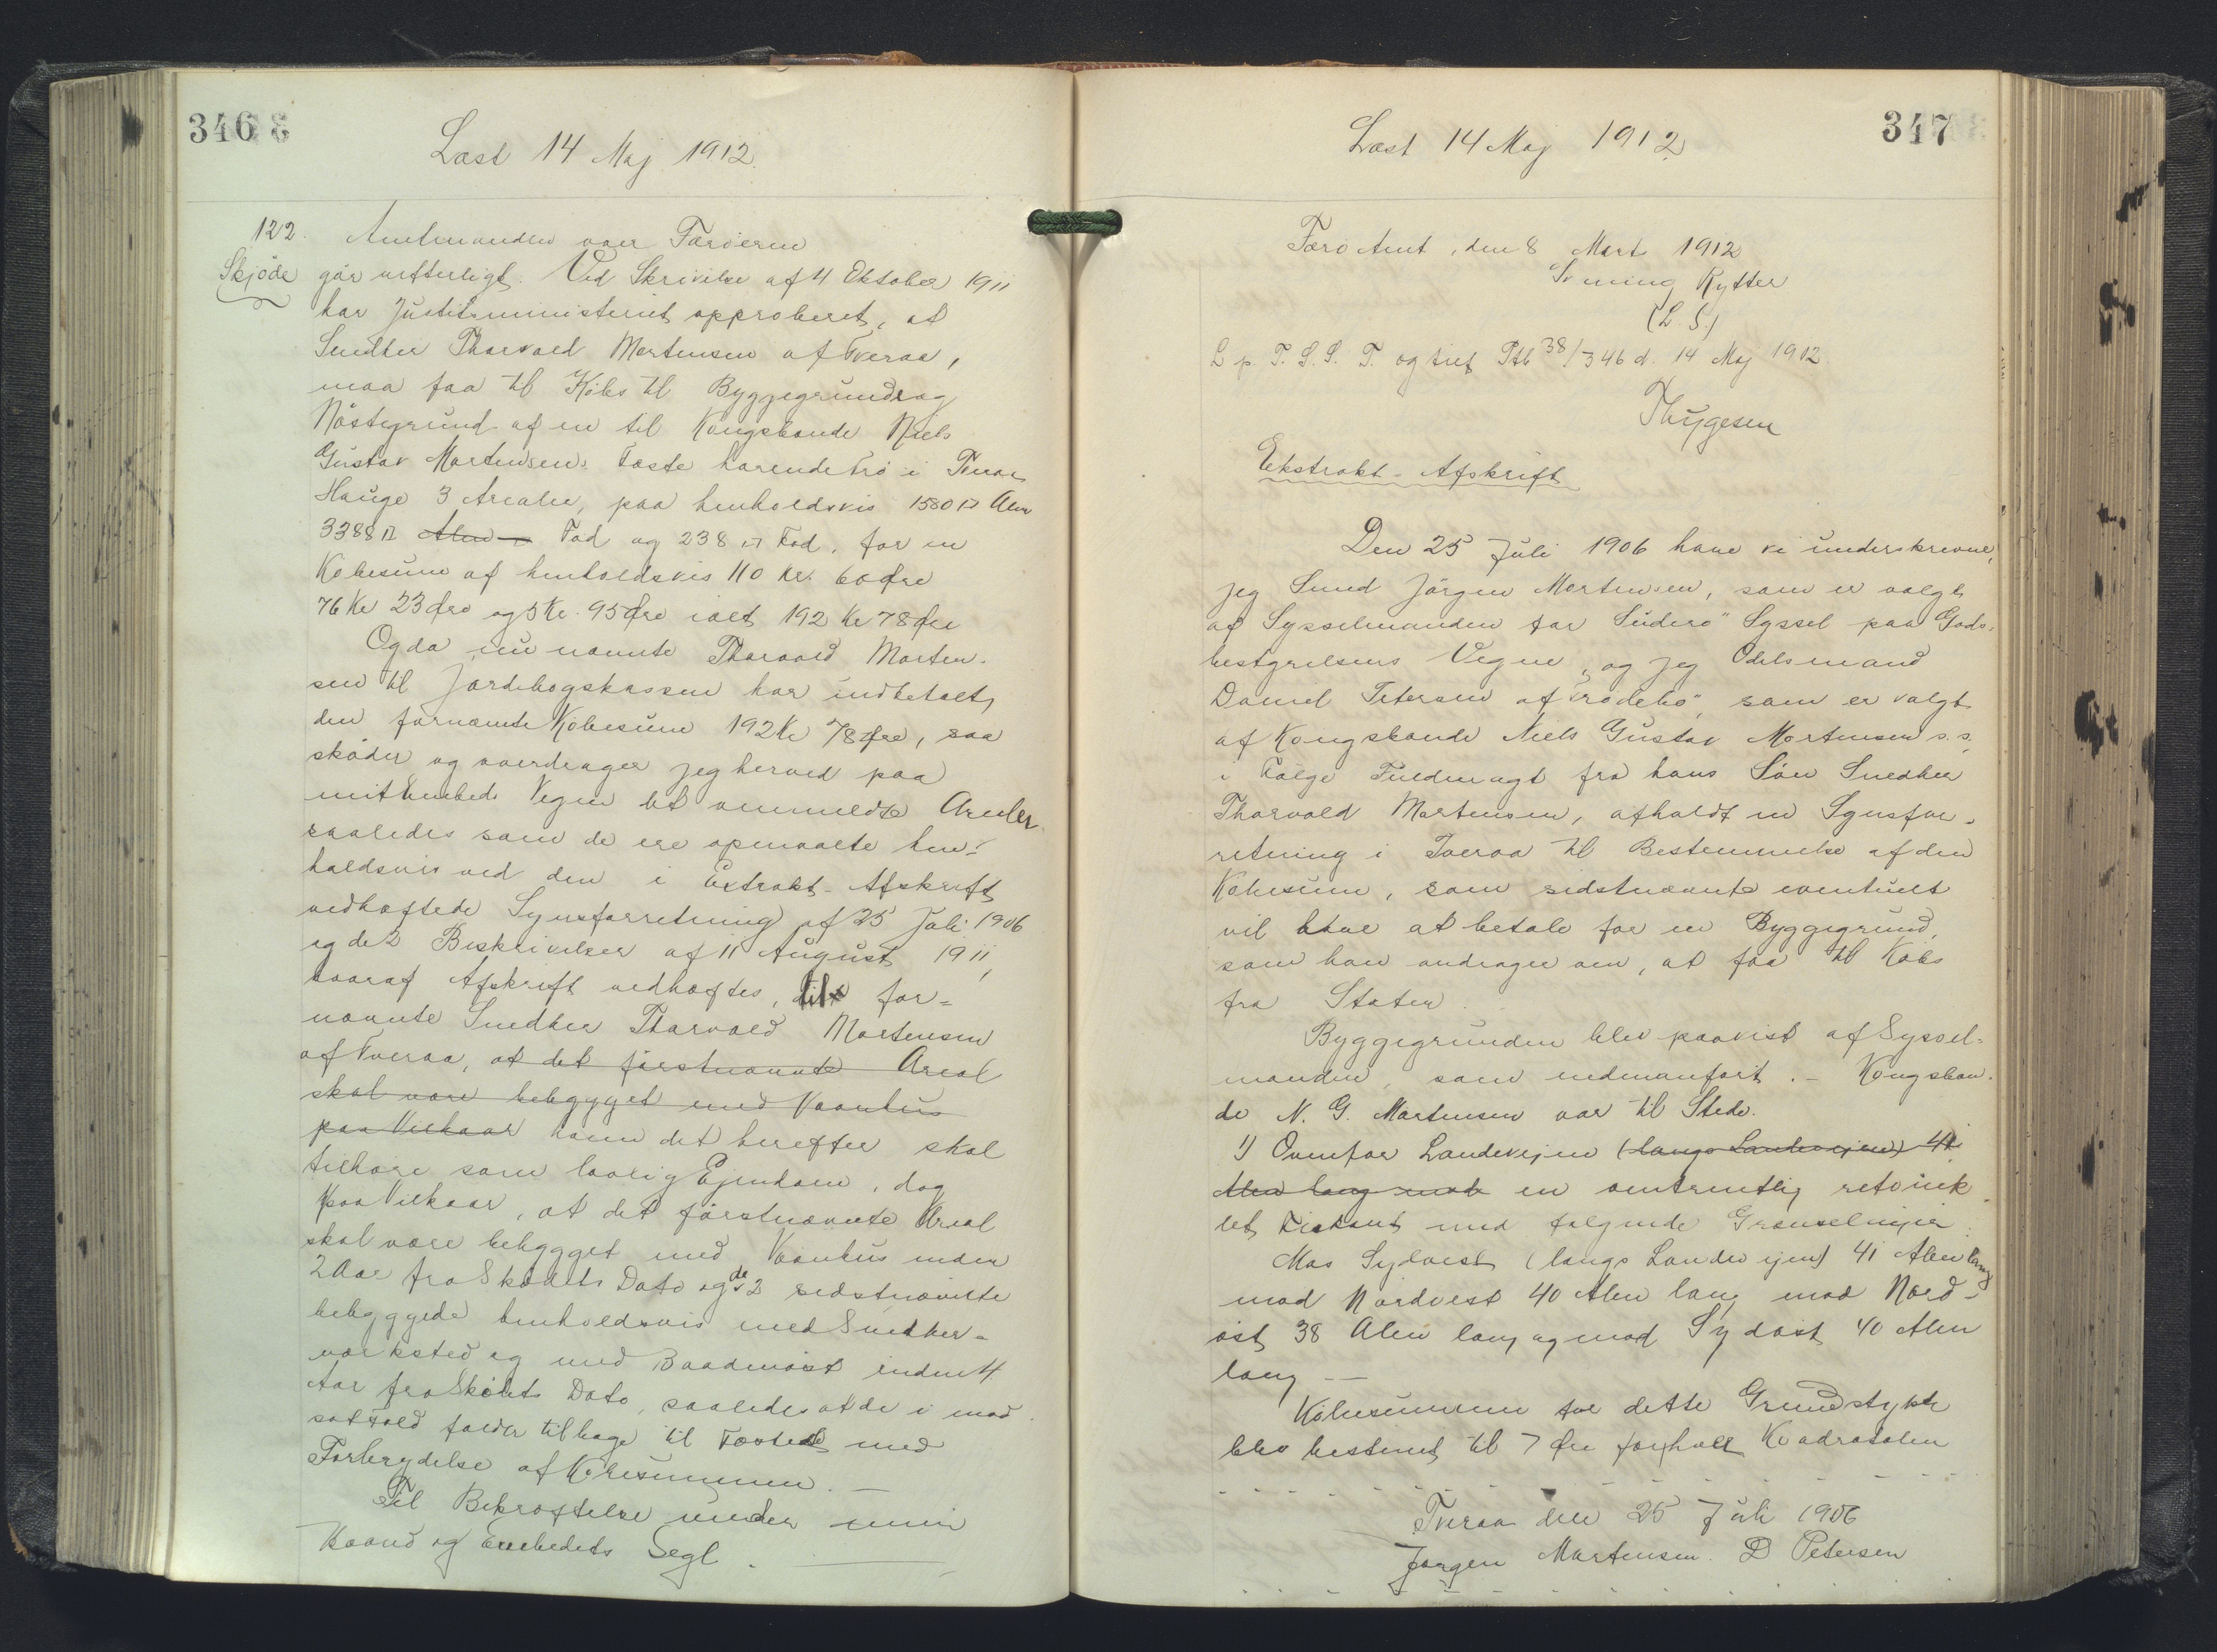 346
Læst 14 Maj 1912.
122. Amtmanden over Færøerne
Skjøde gør vitterligt: Ved Skrivelse af 4 Oktober 1911
har Justitsministeriet approberet, at
Snedker Thorvald Mortensen af Tveraa,
maa faa til Købs til Byggegrund og
Nöstegrund af en til Kongsbonde Niels
Gustav Mortensens Fæste hørende Trö i Tveraa
Hauge 3 Arealer, paa henholdsvis 1580 □ Alen
3388 □ Alen Fod og 238 □ Fod, for en
Købesum af henholdsvis 110 Kr. 60 Øre
76 Kr 23 Øre og 5 Kr. 95 Øre ialt 192 Kr 78 Øre
Og da nu nævnte Thorvald Morten-
sen til Jordebogskassen har indbetalt,
den fornævnte Købesum 192 Kr 78 Øre, saa
skøder og overdrager jeg herved paa
mit Embeds Vegne det ommeldte Arealer
saaledes som de ere opmaalte hen-
holdsvis ved den i Extrakt-Afskrift
vedhæftede Synsforretning af 25 Juli 1906
og de 2 Beskrivelser af 11 August 1911,
hvoraf Afskrift vedhæftes, til for-
nævnte Snedker Thorvald Mortensen
af Tveraa, at det förstnævnte Areal
skal være bebygget med Vaanhus
paa Vilkaar ham det herefter skal
tilhøre som lovlig Ejendom, dog
paa Vilkaar, at det förstnævnte Areal
skal være bebygget med Vaanhus inden
2 Aar fra Skødets Dato og de 2 sidstnævnte
bebyggede henholdsvis med Snedker-
værksted og med Baadnöst inden 4
Aar fra Skødets Dato, saaledes at de i mod-
sat Fald falder tilbage til Fæstet med
Forbrydelse af Købesummen. —
Til Bekræftelse under min
Haand og Embedets Segl.
347
Læst 14 Maj 1912
Færö Amt, den 8 Marts 1912
Svenning Rytter
(L. S.)
L p. T. S. S. T. og tinf Ptb 38/346 d. 14 Maj 1912.
Thygesen
Ekstrakt-Afskrift
Den 25 Juli 1906 have vi underskrevne,
jeg Smed Jörgen Mortensen, som er valgt
af Sysselmanden for Suderö Syssel paa Gods-
bestyrelsens Vegne, og jeg Odelsmand
Daniel Petersen af Frodebö, som er valgt
af Kongsbonde Niels Gustav Mortensen s. s.
i Følge Fuldmagt fra hans Sön Snedker
Thorvald Mortensen, afholdt en Synsfor-
retning i Tveraa til Bestemmelse af den
Købesum, som sidstnævnte eventuelt
vil have at betale for en Byggegrund,
som han andrager om, at faa til Købs
fra Staten.
Byggegrunden blev paavist af Syssel-
manden, som nedenanført. — Kongsbon-
de N. G. Mortensen var til Stede.
1) Ovenfor Landevejen (langs Landevejen) 41
Alen lang mod en omtrentlig retvink-
let Firkant med følgende Grænselinjer:
Mod Sydvest (langs Landevejen) 41 Alen lang
mod Nordvest 40 Alen lang mod Nord-
öst 38 Alen lang og mod Sydöst 40 Alen
lang —
Købesummen for dette Grundstykke
blev bestemt til 7 Øre for hver Kvadratalen
Tveraa den 25 Juli 1906
Jørgen Mortensen. D Petersen